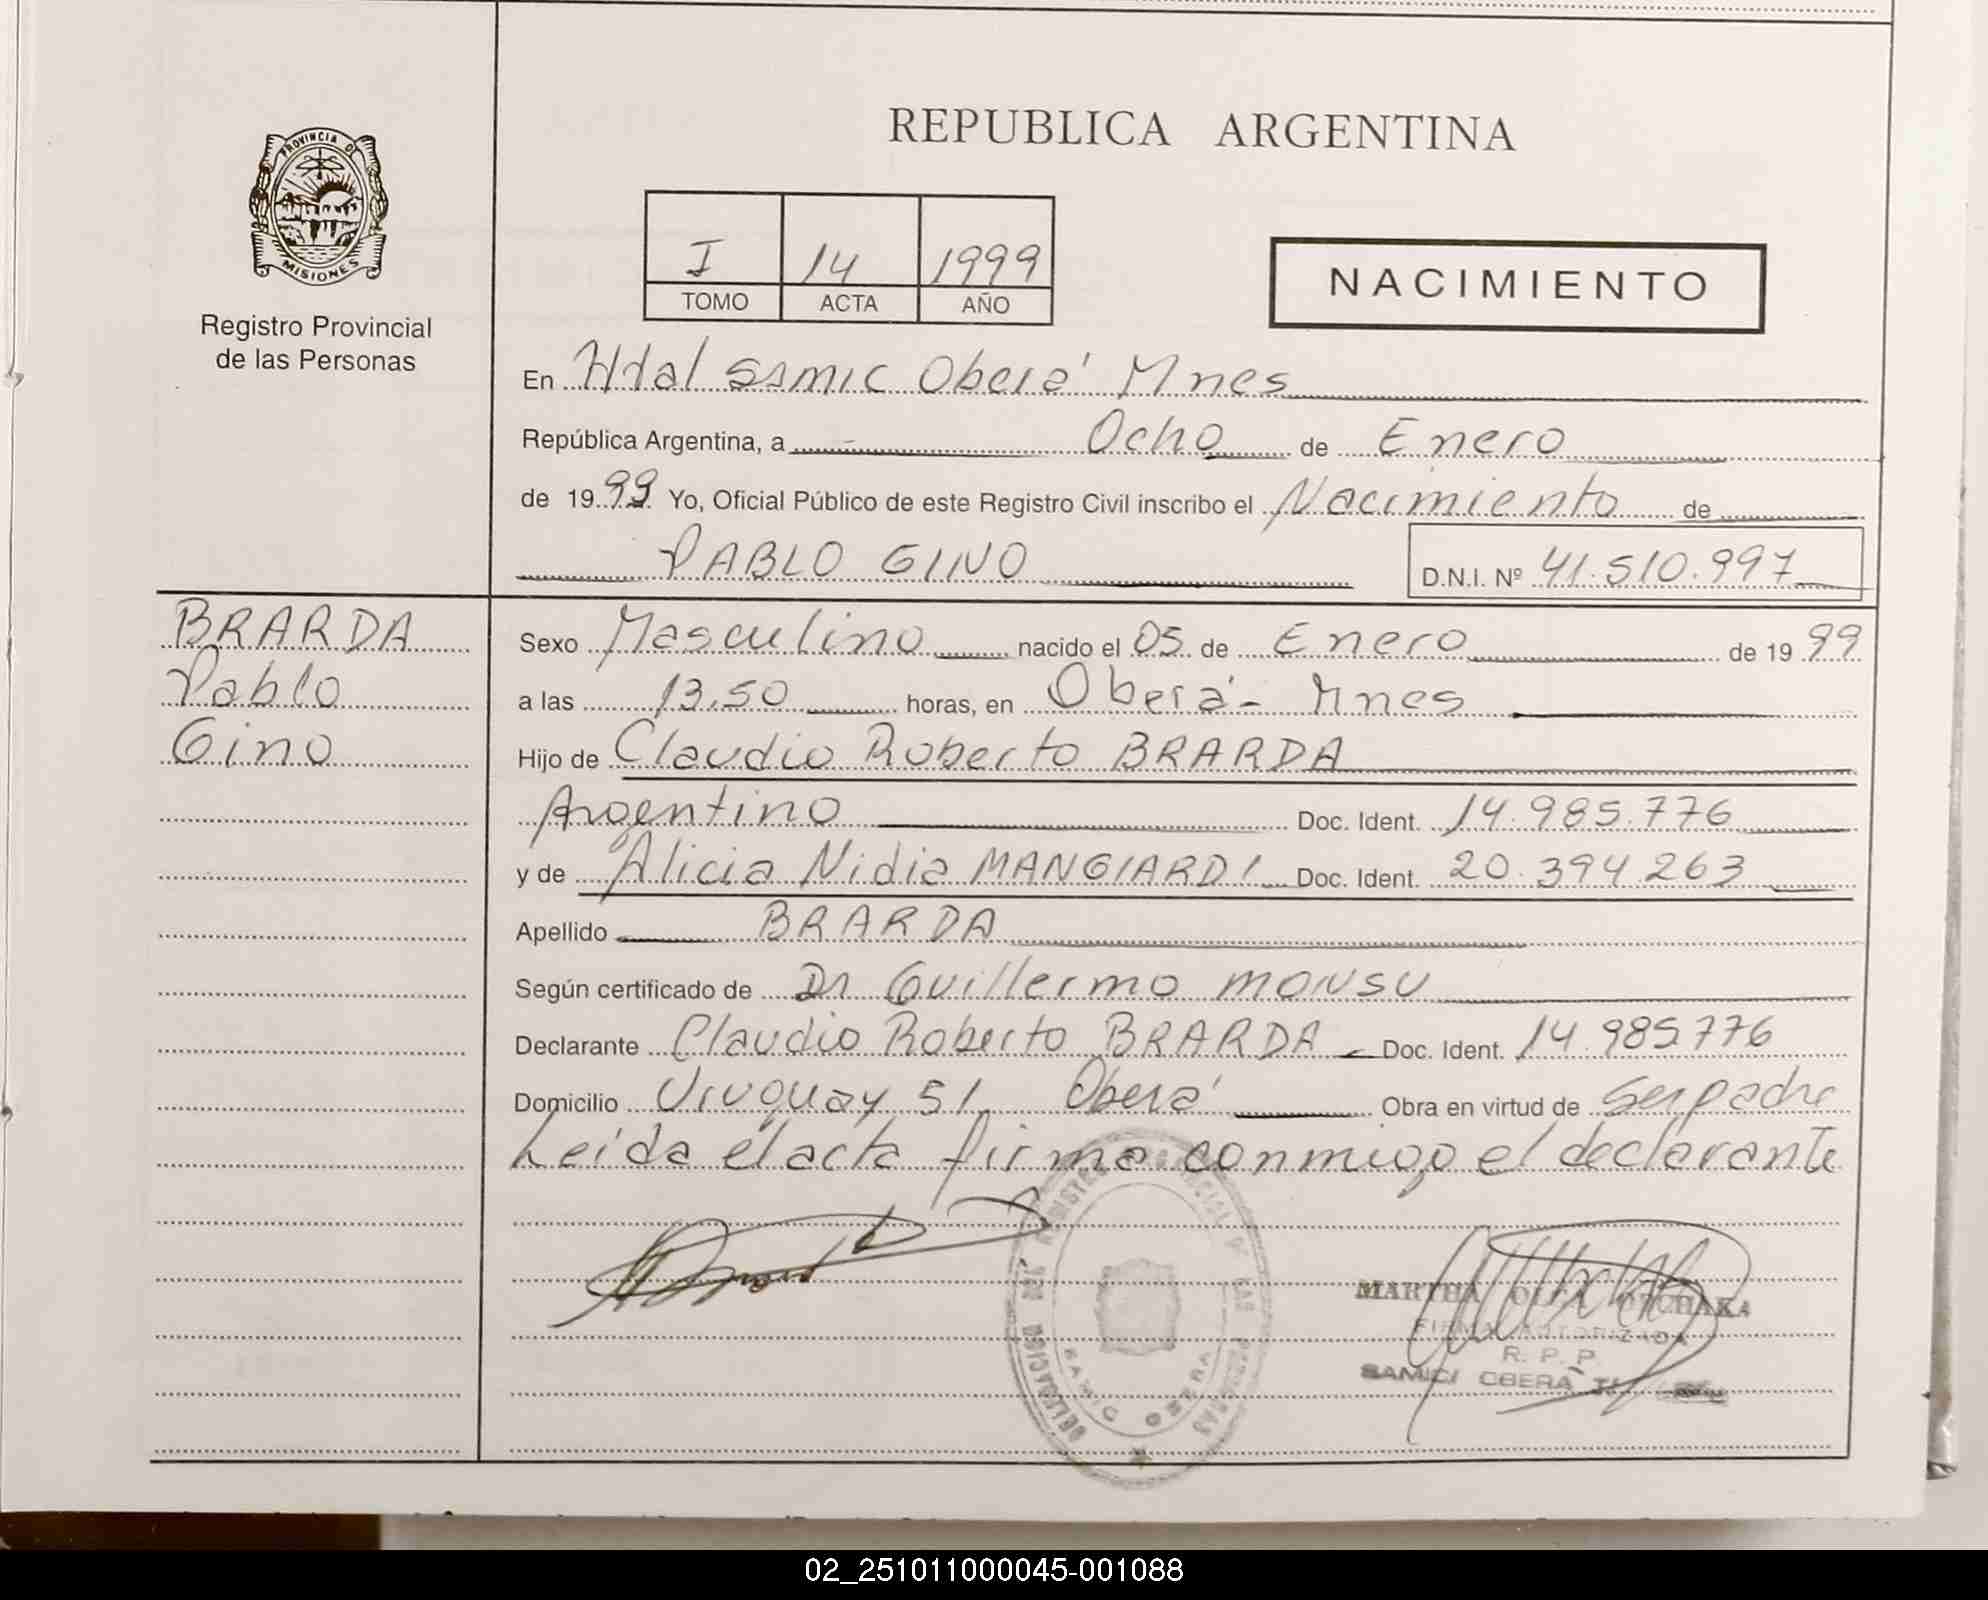 PROVINCIA DE
MISIONES
Registro Provincial
de las Personas
REPUBLICA ARGENTINA
I 14 1999
TOMO ACTA AÑO
NACIMIENTO
En Htal SAMIC Oberá Mnes
República Argentina, a Ocho de Enero
de 1999 Yo, Oficial Público de este Registro Civil inscribo el Nacimiento de
PABLO GINO D.N.I. Nº 41.510.997
BRARDA
Pablo
Gino
Sexo Masculino nacido el 05 de Enero de 1999
a las 13,50 horas, en Oberá - Mnes
Hijo de Claudio Roberto BRARDA
Argentino Doc. Ident. 14.985.776
y de Alicia Nidia MANGIARDI Doc. Ident. 20.394.263
Apellido BRARDA
Según certificado de Dr Guillermo MONSU
Declarante Claudio Roberto BRARDA Doc. Ident. 14.985.776
Domicilio Uruguay 51 Oberá Obra en virtud de Ser padre
Leída el acta firma conmigo el declarante
MARTHA OLGA
FIRMA AUTORIZADA
R. P. P.
SAMIC OBERA
DELEGACION
SAMIC OBERA
02_251011000045-001088